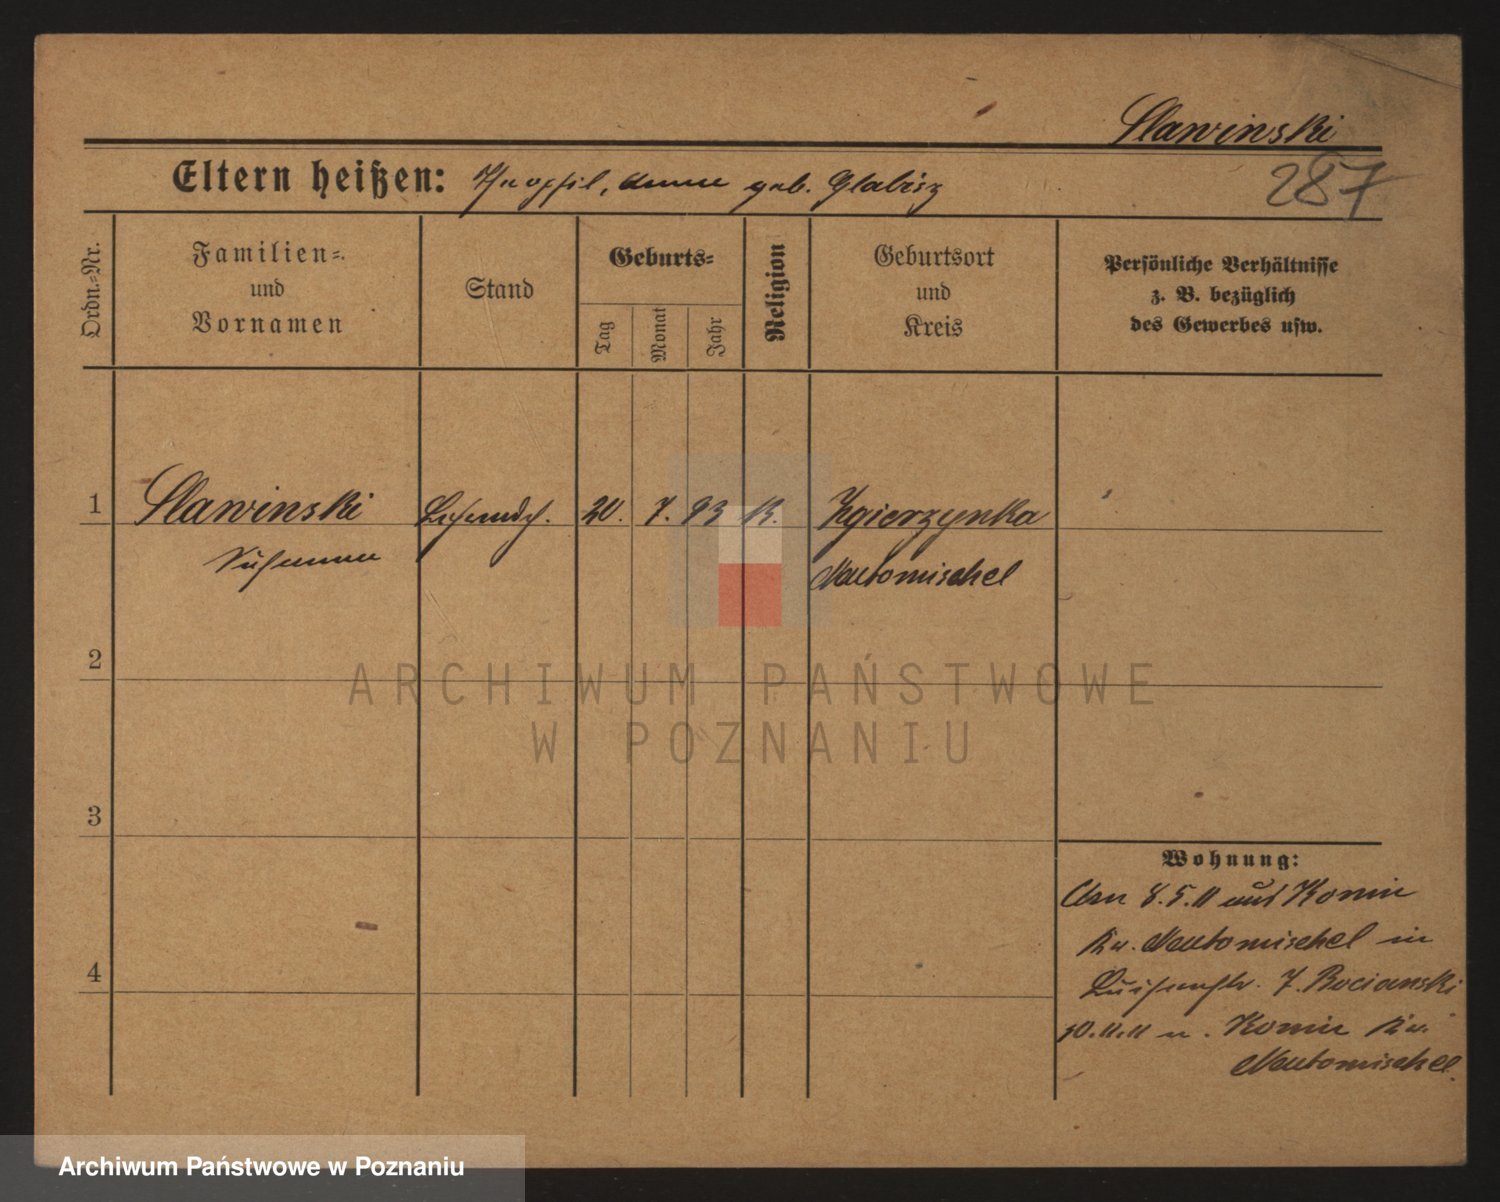 Slawinski
287
Eltern heißen: Theophil, Anna geb. Glabisz
Ordn.=Nr.
Familien=
und
Vornamen
Stand
Geburts=
Tag
Monat
Jahr
Religion
Geburtsort
und
Kreis
Persönliche Verhältnisse
z. B. bezüglich
des Gewerbes usw.
1 Slawinski 20. 7. 93 K. Zgierzynka
Neutomischel
2
3
4
Wohnung:
Am 8.5.11 aus Konin
Kr. Neutomischel in
Luisenstr. 7. Bocianski
10.11.11 n. Konin Kr.
Neutomischel.
ARCHIWUM PAŃSTWOWE
W POZNANIU
Archiwum Państwowe w Poznaniu